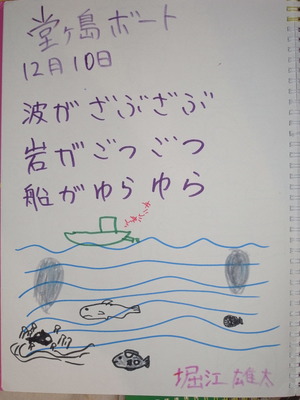 堂ヶ島ボート
12月10日
波がざぶざぶ
岩がごつごつ
船がゆらゆら
堀江雄太